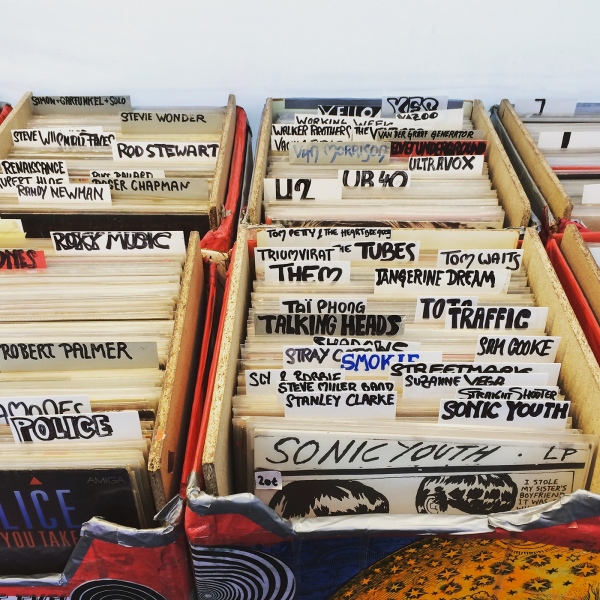 SIMON + GARFUNKEL + SOLO
STEVIE WONDER
ROD STEWART
RENAISSANCE
ROGER CHAPMAN
RANDY NEWMAN
ROXY MUSIC
ROBERT PALMER
POLICE
AMIGA
LICE
YOU TAKE
YES
YELLO
WORKING WEEK
WALKER BROTHERS
THE V
VAN DER GRAAF GENERATOR
VAN MORRISON
VELVET UNDERGROUND
ULTRAVOX
UB 40
U2
7
TOM PETTY & THE HEARTBREAKERS
TRIUMVIRAT
THE TUBES
TOM WAITS
THEM
TANGERINE DREAM
TAÏ PHONG
TOTO
TRAFFIC
TALKING HEADS
SAM COOKE
STRAY C
SMOKIE
STREETMARK
SLY & ROBBIE
SUZANNE VEGA
STEVE MILLER BAND
STRAIGHT SHOOTER
STANLEY CLARKE
SONIC YOUTH
SONIC YOUTH · LP
2nd
I STOLE
MY SISTER'S
BOYFRIEND
IT WA